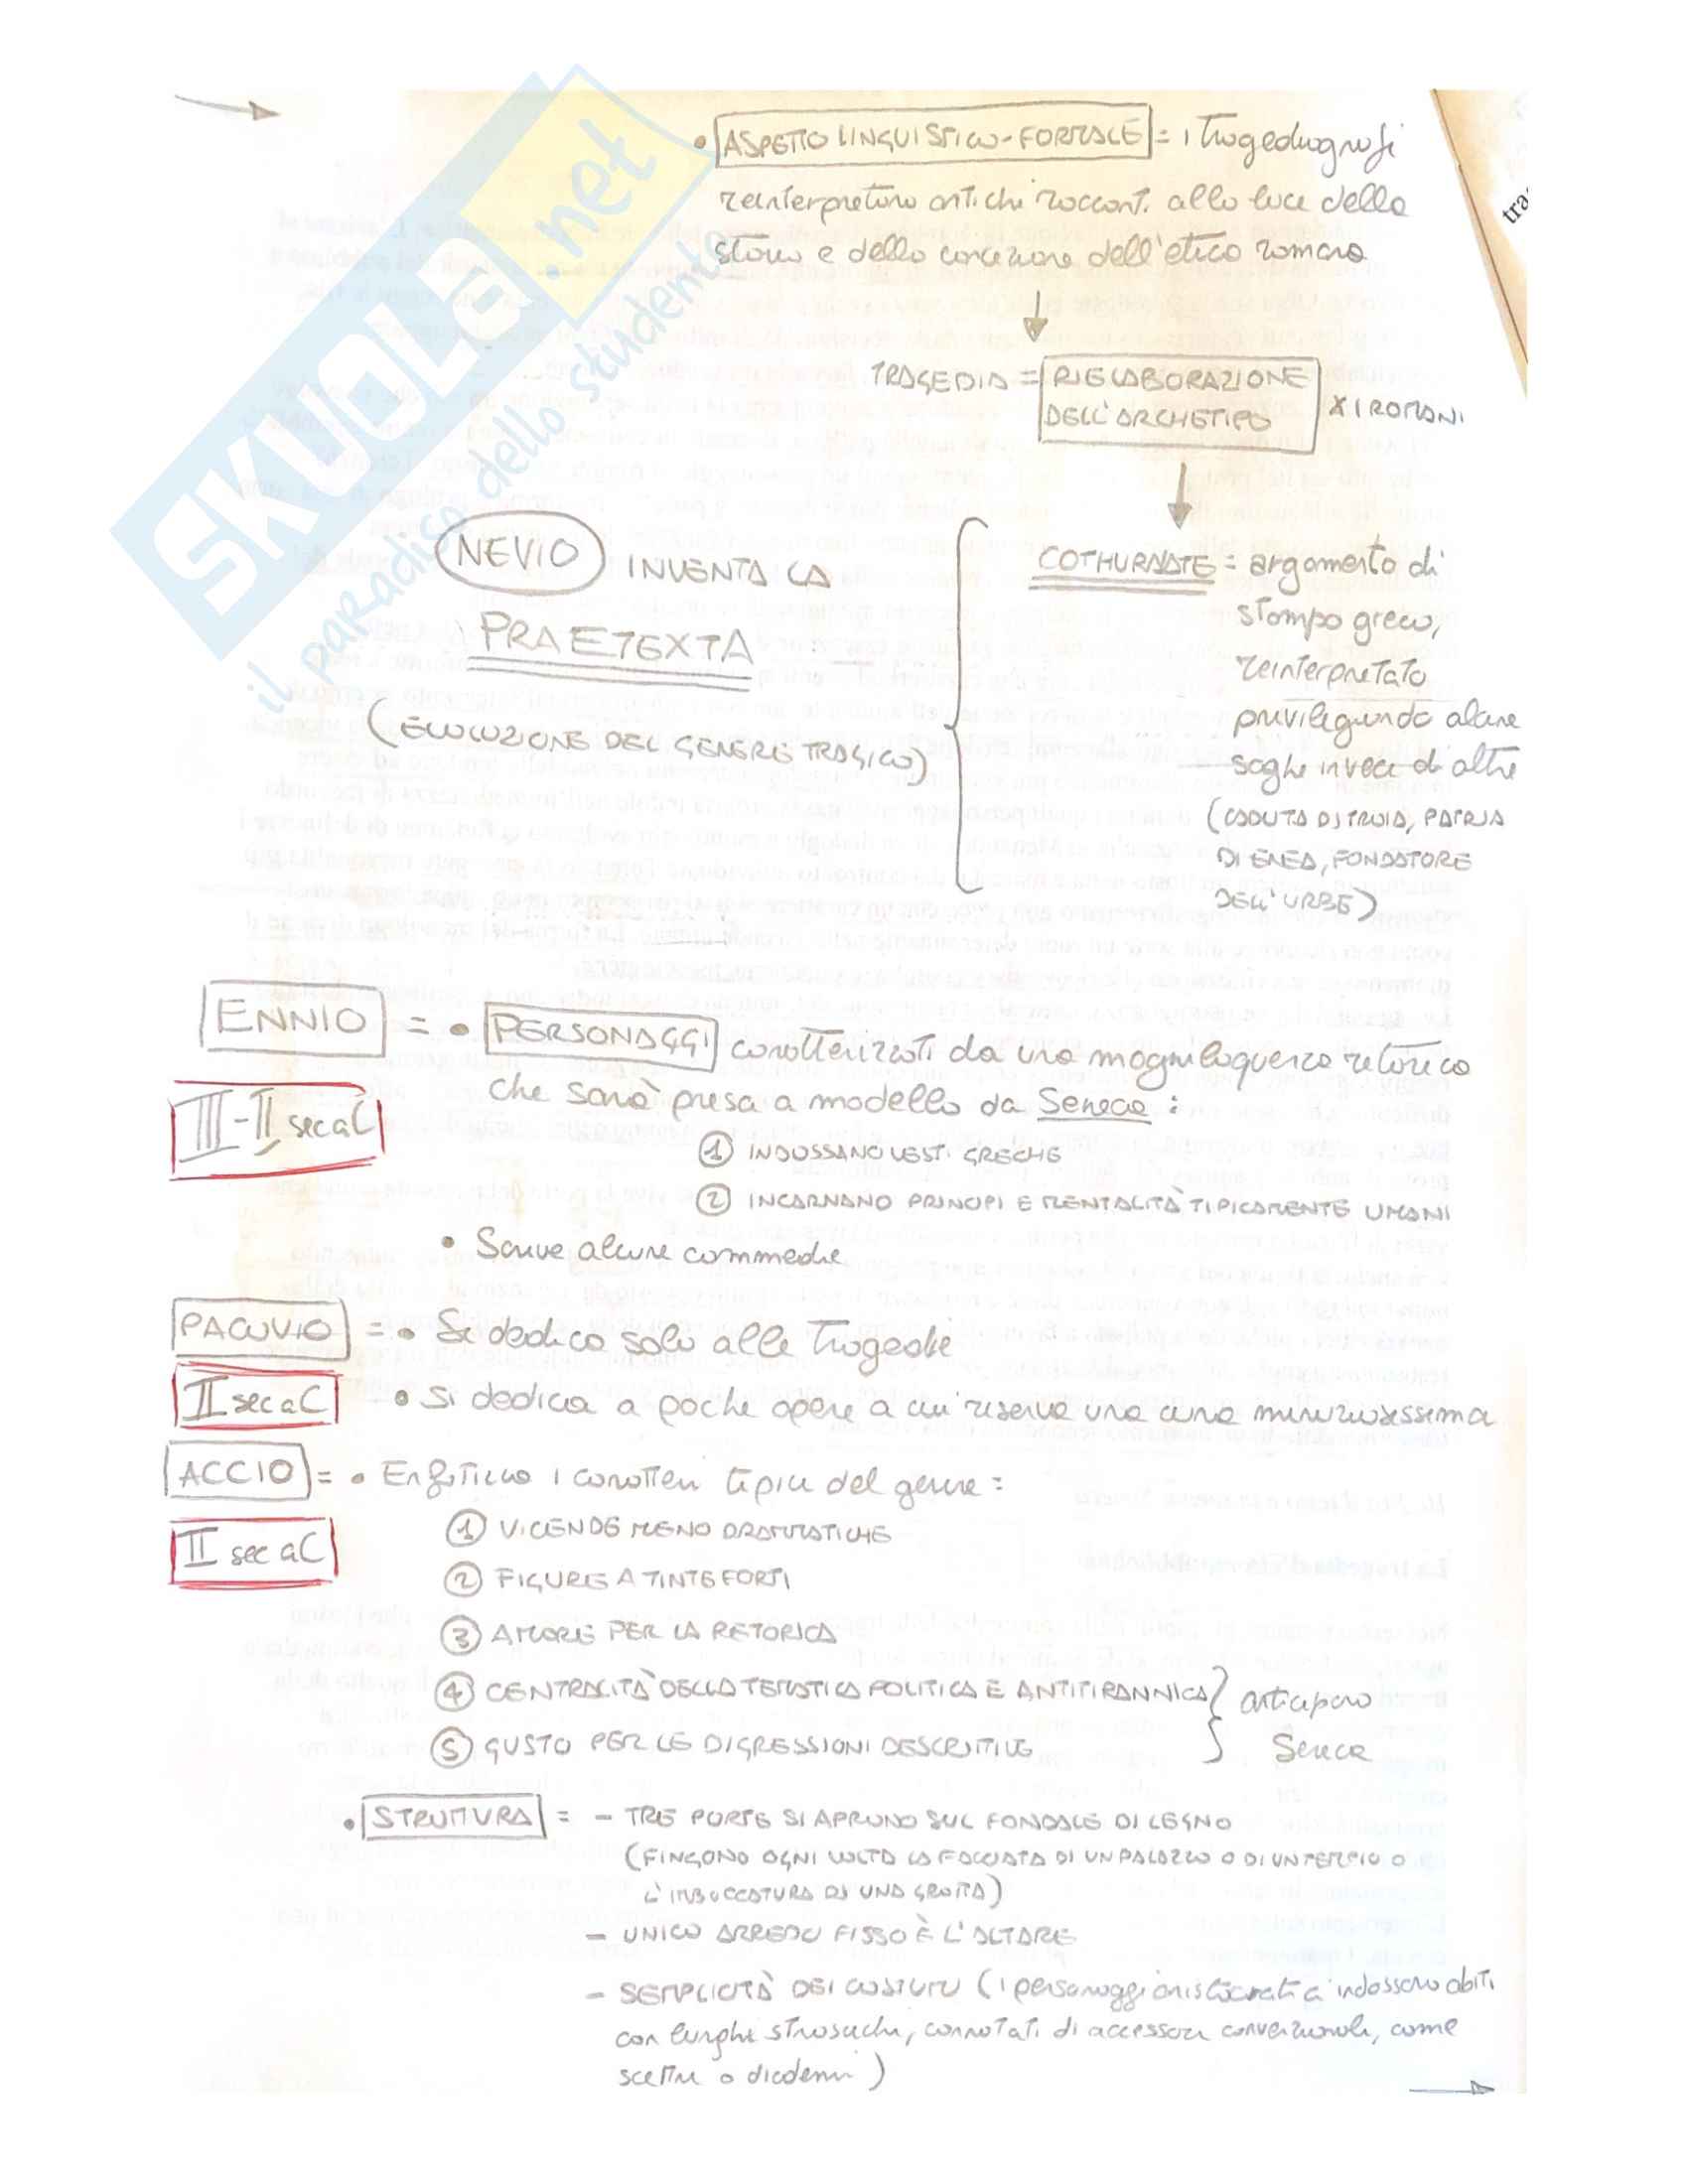 • ASPETTO LINGUISTICO-FORMALE = i tragediografi
reinterpretano antichi racconti alla luce della
storia e della concezione dell'etica romana
TRAGEDIA = RIELABORAZIONE
DELL'ARCHETIPO X I ROMANI
NEVIO INVENTA LA
PRAETEXTA
(EVOLUZIONE DEL GENERE TRAGICO)
COTHURNATE = argomento di
stampo greco,
reinterpretato
privilegiando alcune
saghe invece di altre
(CADUTA DI TROIA, PATRIA
DI ENEA, FONDATORE
DELL'URBE)
ENNIO = • PERSONAGGI caratterizzati da una magniloquenza retorica
che sarà presa a modello da Seneca:
III-II sec aC
1 INDOSSANO VESTI GRECHE
2 INCARNANO PRINCIPI E MENTALITÀ TIPICAMENTE UMANI
• Scrive alcune commedie
PACUVIO = • Si dedica solo alle tragedie
II sec aC • Si dedica a poche opere a cui riserva una cura minuziosissima
ACCIO = • Enfatizza i caratteri tipici del genere:
II sec aC
1 VICENDE MENO DRAMMATICHE
2 FIGURE A TINTE FORTI
3 AMORE PER LA RETORICA
4 CENTRALITÀ DELLA TEMATICA POLITICA E ANTITIRANNICA
5 GUSTO PER LE DIGRESSIONI DESCRITTIVE
anticipano
Seneca
• STRUTTURA = - TRE PORTE SI APRONO SUL FONDALE DI LEGNO
(FINGONO OGNI VOLTA LA FACCIATA DI UN PALAZZO O DI UN TEMPIO O
L'IMBOCCATURA DI UNA GROTTA)
- UNICO ARREDO FISSO È L'ALTARE
- SEMPLICITÀ DEI COSTUMI (i personaggi aristocratici indossano abiti
con lunghi strascichi, connotati di accessori convenzionali, come
scettri o diademi)
tra
SKUOLA.net
il paradiso dello studente